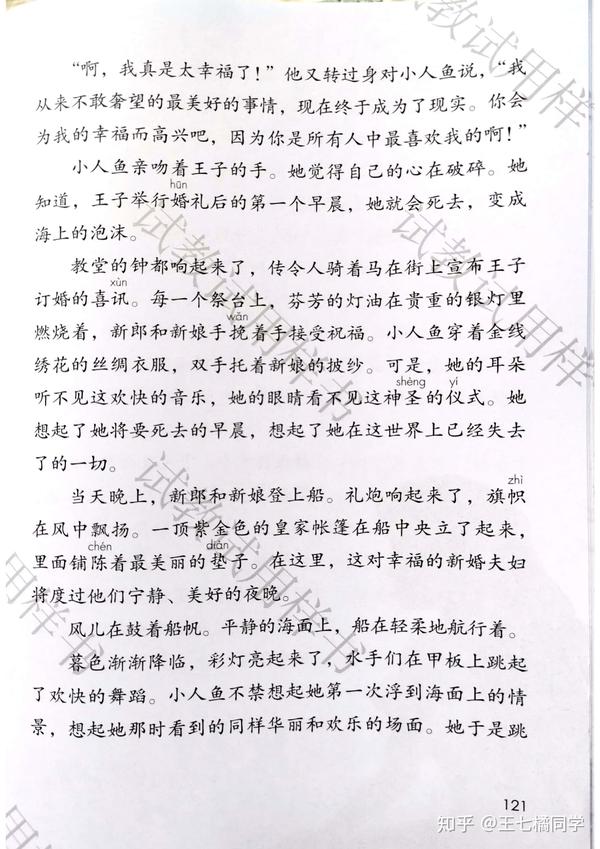 “啊，我真是太幸福了！”他又转过身对小人鱼说，“我
从来不敢奢望的最美好的事情，现在终于成为了现实。你会
为我的幸福而高兴吧，因为你是所有人中最喜欢我的啊！”
小人鱼亲吻着王子的手。她觉得自己的心在破碎。她
hūn
知道，王子举行婚礼后的第一个早晨，她就会死去，变成
海上的泡沫。
教堂的钟都响起来了，传令人骑着马在街上宣布王子
xùn
订婚的喜讯。每一个祭台上，芬芳的灯油在贵重的银灯里
wǎn
燃烧着，新郎和新娘手挽着手接受祝福。小人鱼穿着金线
绣花的丝绸衣服，双手托着新娘的披纱。可是，她的耳朵
shèng yí
听不见这欢快的音乐，她的眼睛看不见这神圣的仪式。她
想起了她将要死去的早晨，想起了她在这世界上已经失去
了的一切。
zhì
当天晚上，新郎和新娘登上船。礼炮响起来了，旗帜
在风中飘扬。一顶紫金色的皇家帐篷在船中央立了起来，
chén diàn
里面铺陈着最美丽的垫子。在这里，这对幸福的新婚夫妇
将度过他们宁静、美好的夜晚。
风儿在鼓着船帆。平静的海面上，船在轻柔地航行着。
暮色渐渐降临，彩灯亮起来了，水手们在甲板上跳起
了欢快的舞蹈。小人鱼不禁想起她第一次浮到海面上的情
景，想起她那时看到的同样华丽和欢乐的场面。她于是跳
121
知乎 @王七橘同学
试教试用样
试教试用样书
试教试用样
试教试用样书
用样书